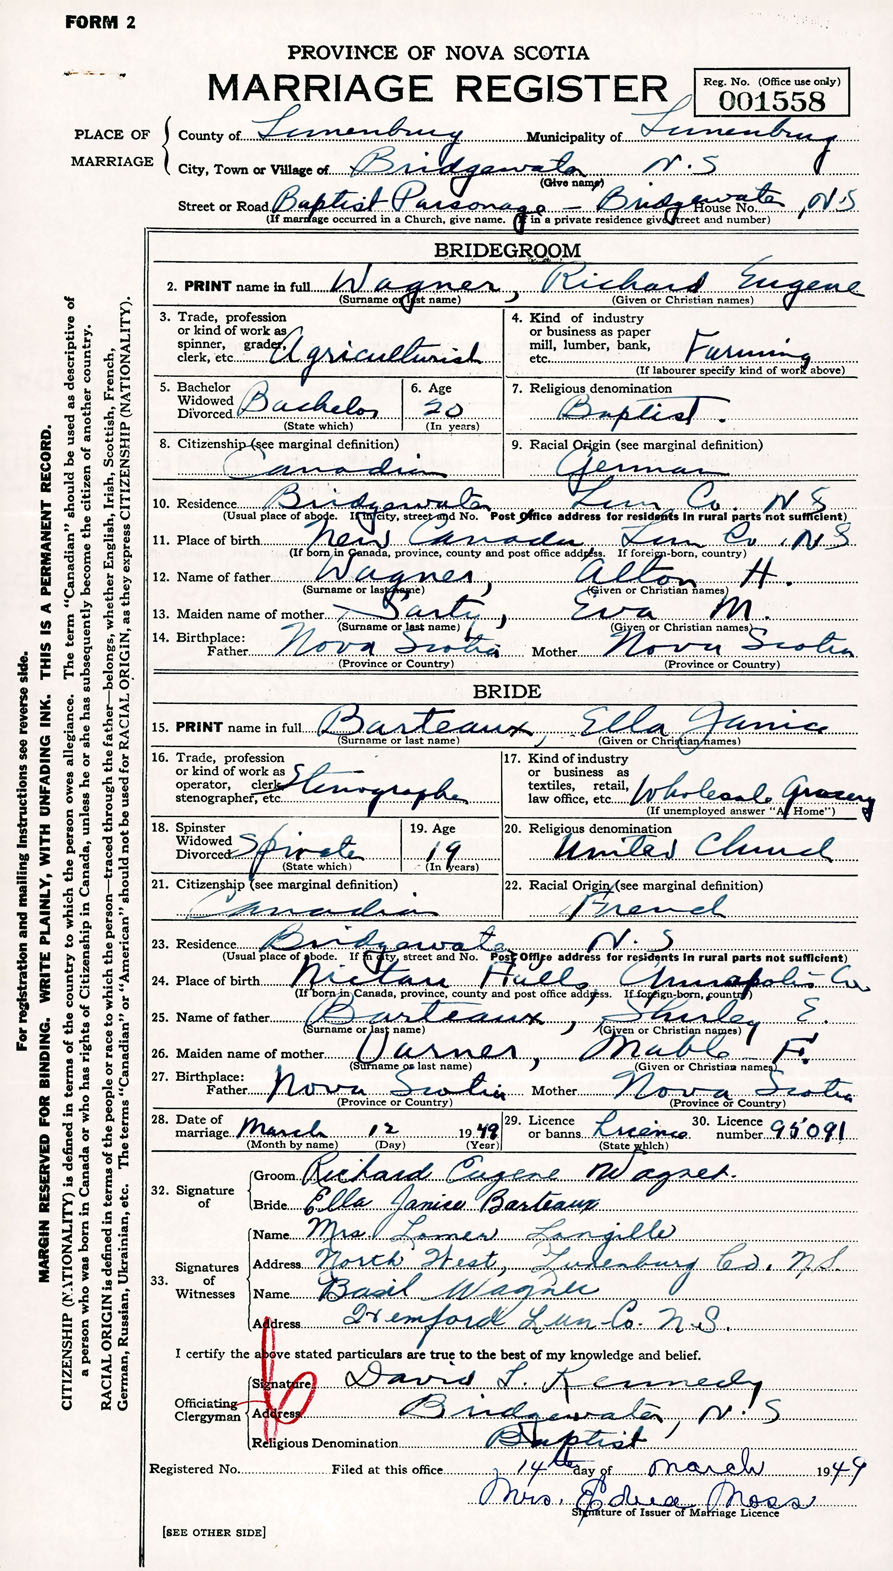 FORM 2
PROVINCE OF NOVA SCOTIA
MARRIAGE REGISTER
Reg. No. (Office use only)
001558
PLACE OF MARRIAGE
County of Lunenburg Municipality of Lunenburg
City, Town or Village of Bridgewater N.S
(Give name)
Street or Road Baptist Parsonage – Bridgewater House No. , N.S
(If marriage occurred in a Church, give name. If in a private residence give street and number)
BRIDEGROOM
2. PRINT name in full Wagner, Richard Eugene
(Surname or last name) (Given or Christian names)
3. Trade, profession or kind of work as spinner, grader, clerk, etc. Agriculturist
4. Kind of industry or business as paper mill, lumber, bank, etc. Farming
(If labourer specify kind of work above)
5. Bachelor Widowed Divorced Bachelor
(State which)
6. Age 20
(In years)
7. Religious denomination Baptist.
8. Citizenship (see marginal definition)
Canadian
9. Racial Origin (see marginal definition)
German
10. Residence Bridgewater Lun Co. N S
(Usual place of abode. If in city, street and No. Post Office address for residents in rural parts not sufficient)
11. Place of birth New Canada Lun Co. N S
(If born in Canada, province, county and post office address. If foreign-born, country)
12. Name of father Wagner, Alton H.
(Surname or last name) (Given or Christian names)
13. Maiden name of mother Sarty, Eva M.
(Surname or last name) (Given or Christian names)
14. Birthplace: Father Nova Scotia Mother Nova Scotia
(Province or Country) (Province or Country)
BRIDE
15. PRINT name in full Barteaux, Ella Janice
(Surname or last name) (Given or Christian names)
16. Trade, profession or kind of work as operator, clerk, stenographer, etc. Stenographer
17. Kind of industry or business as textiles, retail, law office, etc. Wholesale Grocery
(If unemployed answer "At Home")
18. Spinster Widowed Divorced
(State which)
19. Age 19
(In years)
20. Religious denomination
United Church
21. Citizenship (see marginal definition)
Canadian
22. Racial Origin (see marginal definition)
French
23. Residence Bridgewater N. S
(Usual place of abode. If in city, street and No. Post Office address for residents in rural parts not sufficient)
24. Place of birth Nictau Falls, Annapolis Co
(If born in Canada, province, county and post office address. If foreign-born, country)
25. Name of father Barteaux, Shirley E.
(Surname or last name) (Given or Christian names)
26. Maiden name of mother Varner, Mable F.
(Surname or last name) (Given or Christian names)
27. Birthplace: Father Nova Scotia Mother Nova Scotia
(Province or Country) (Province or Country)
28. Date of marriage March 12 1949
(Month by name) (Day) (Year)
29. Licence or banns License
(State which)
30. Licence number 95091
32. Signature of
Groom Richard Eugene Wagner.
Bride Ella Janice Barteaux
33. Signatures of Witnesses
Name Mrs. Lamer Langille
Address North West, Lunenburg Co. N.S.
Name Basil Wagner
Address Hemford Lun. Co. N.S.
I certify the above stated particulars are true to the best of my knowledge and belief.
Officiating Clergyman
Signature David L. Kennedy
Address Bridgewater, N. S
Religious Denomination Baptist
Registered No. Filed at this office 14th day of March 1949
Mrs. Edna Moss
Signature of Issuer of Marriage Licence
[SEE OTHER SIDE]
For registration and mailing Instructions see reverse side.
MARGIN RESERVED FOR BINDING. WRITE PLAINLY, WITH UNFADING INK. THIS IS A PERMANENT RECORD.
CITIZENSHIP (NATIONALITY) is defined in terms of the country to which the person owes allegiance. The term "Canadian" should be used as descriptive of
a person who was born in Canada or who has rights of Citizenship in Canada, unless he or she has subsequently become the citizen of another country.
RACIAL ORIGIN is defined in terms of the people or race to which the person—traced through the father—belongs, whether English, Irish, Scottish, French,
German, Russian, Ukrainian, etc. The terms "Canadian" or "American" should not be used for RACIAL ORIGIN, as they express CITIZENSHIP (NATIONALITY).